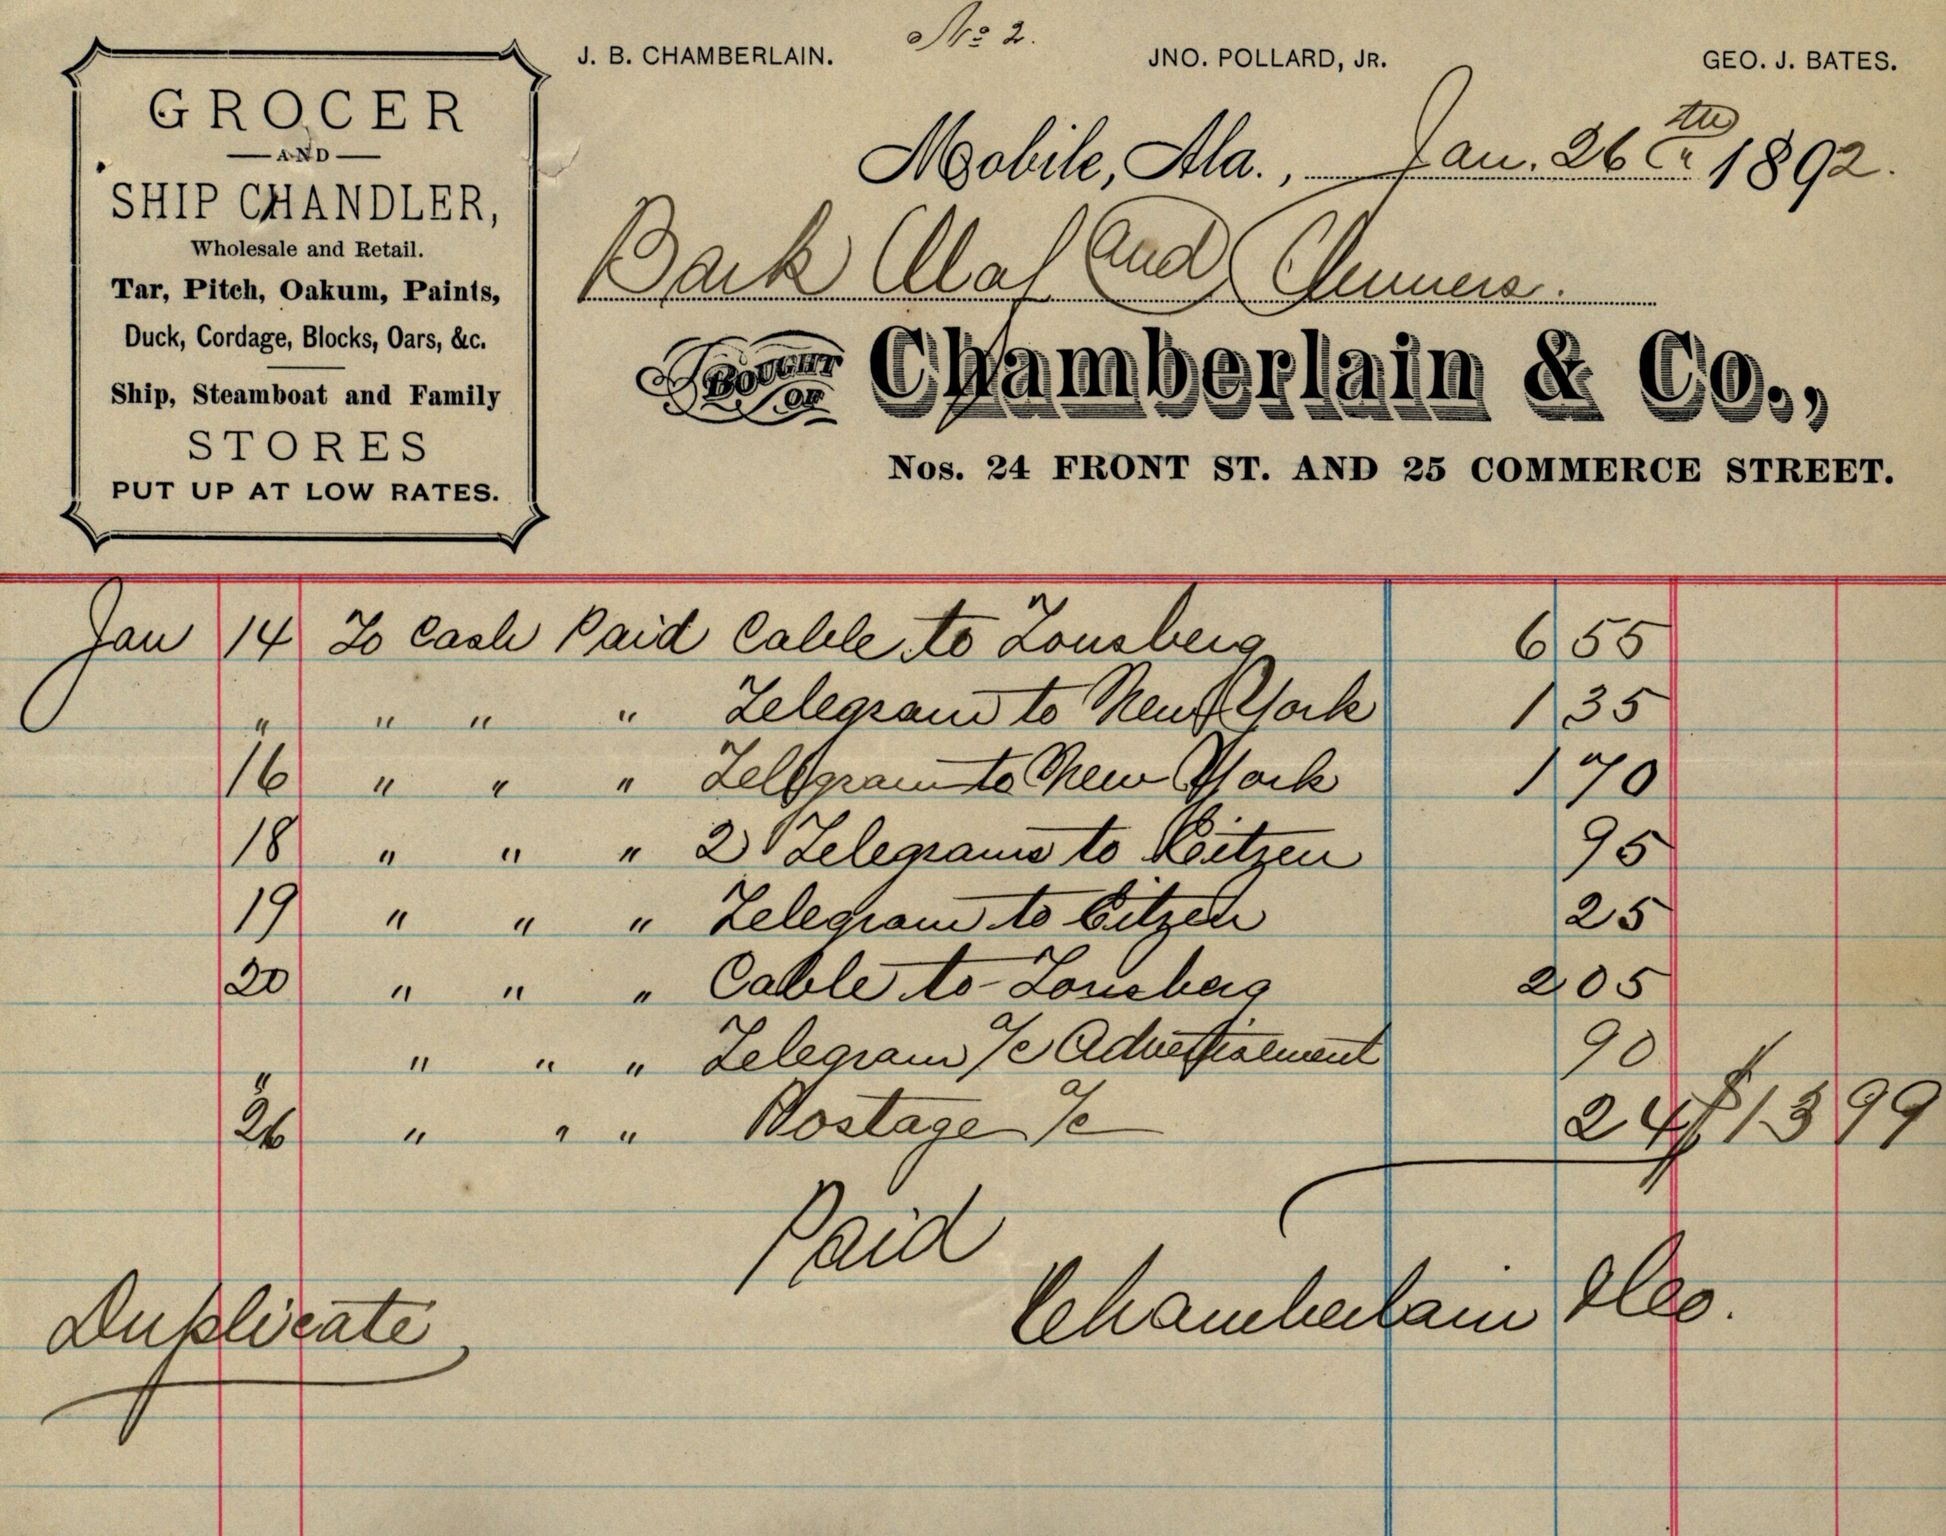 No 2.
J. B. CHAMBERLAIN. JNO. POLLARD, JR. GEO. J. BATES.
GROCER
AND
SHIP CHANDLER,
Wholesale and Retail.
Tar, Pitch, Oakum, Paints,
Duck, Cordage, Blocks, Oars, &c.
Ship, Steamboat and Family
STORES
PUT UP AT LOW RATES.
Mobile, Ala., Jan. 26th 1892.
Bark Olaf and Owners.
BOUGHT OF Chamberlain & Co.,
Nos. 24 FRONT ST. AND 25 COMMERCE STREET.
Jan 14 To Cash Paid Cable to Tonsberg 6 55
" " " " Telegram to New York 1 35
16 " " " Telegram to New York 1 70
18 " " " 2 Telegrams to Citzen 95
19 " " " Telegram to Citzen 25
20 " " " Cable to Tonsberg 2 05
" " " " Telegram a/c Advertisement 90
26 " " " Postage a/c 24 $13 99
Paid
Chamberlain & Co.
Duplicate